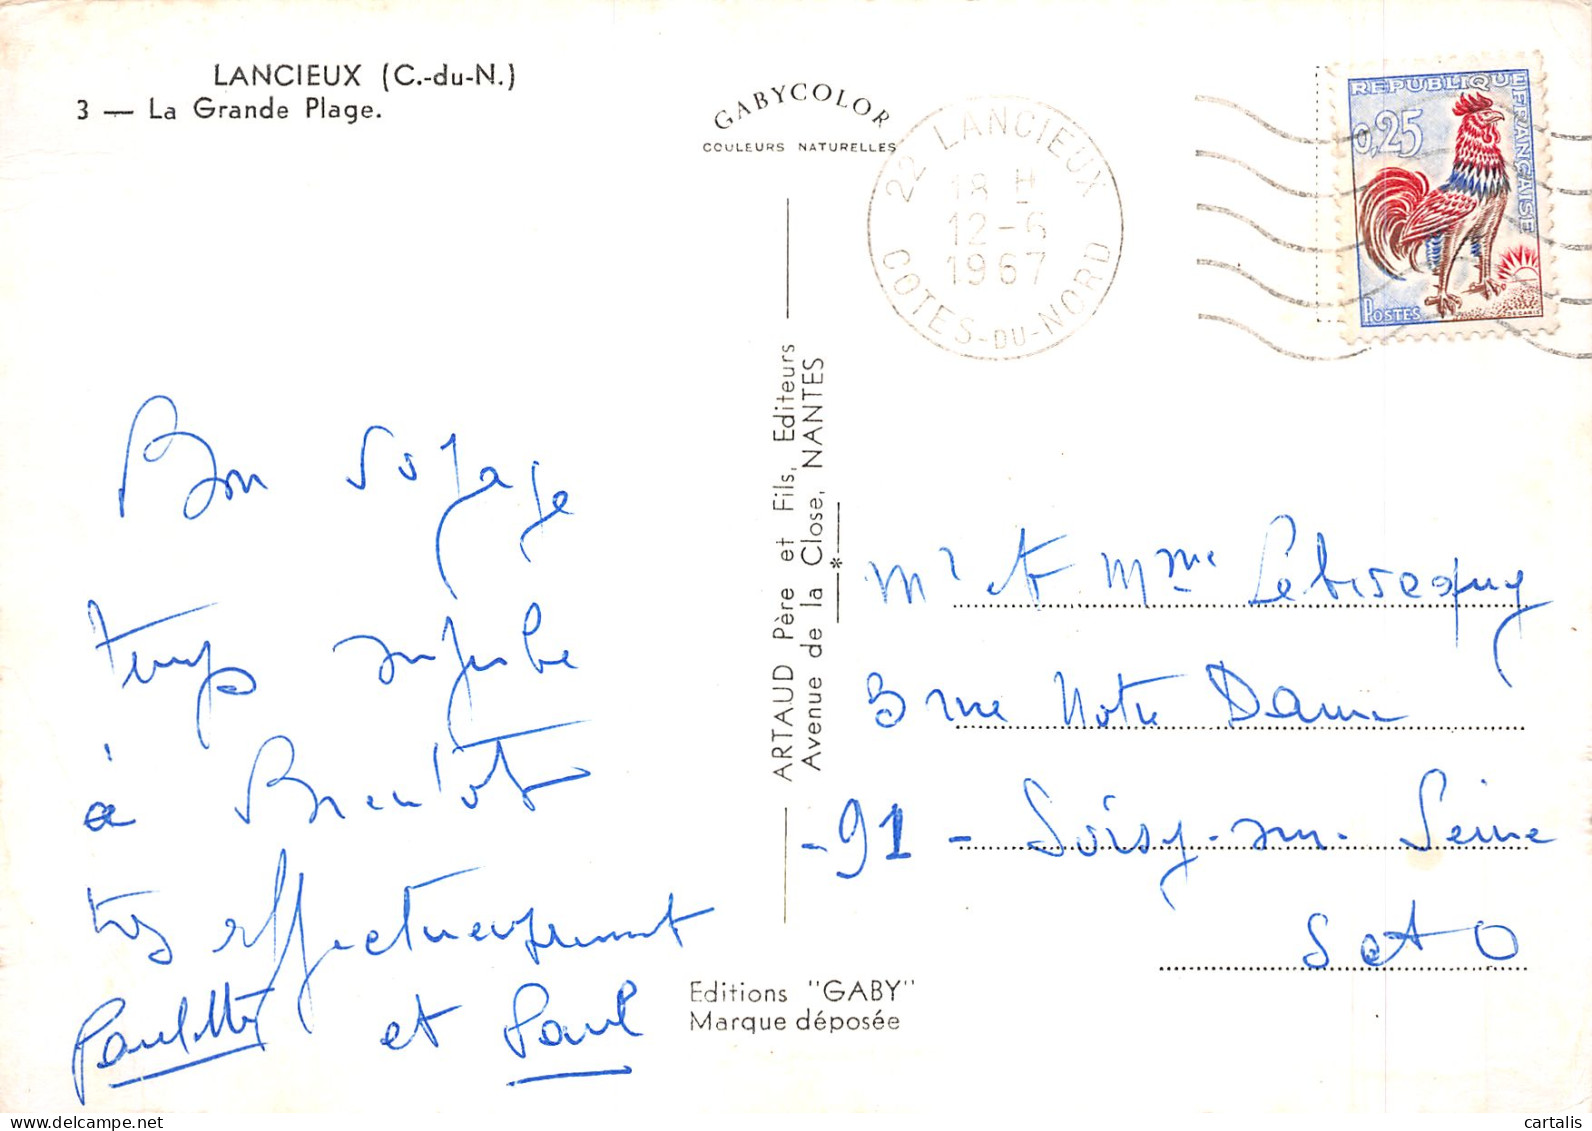 LANCIEUX (C.-du-N.)
3 — La Grande Plage.
GABYCOLOR
COULEURS NATURELLES
22 LANCIEUX
18 H
12-6
1967
COTES-DU-NORD
REPUBLIQUE FRANÇAISE
0,25
POSTES
DECARIS
Bon voyage
temps superbe
à Bientôt
très affectueusement
Paulette et Paul
ARTAUD Père et Fils, Editeurs
Avenue de la Close, NANTES
*
Mr et Mme
3 rue Notre Dame
-91- Soisy-sur-Seine
S et O
Editions "GABY"
Marque déposée
cartalis